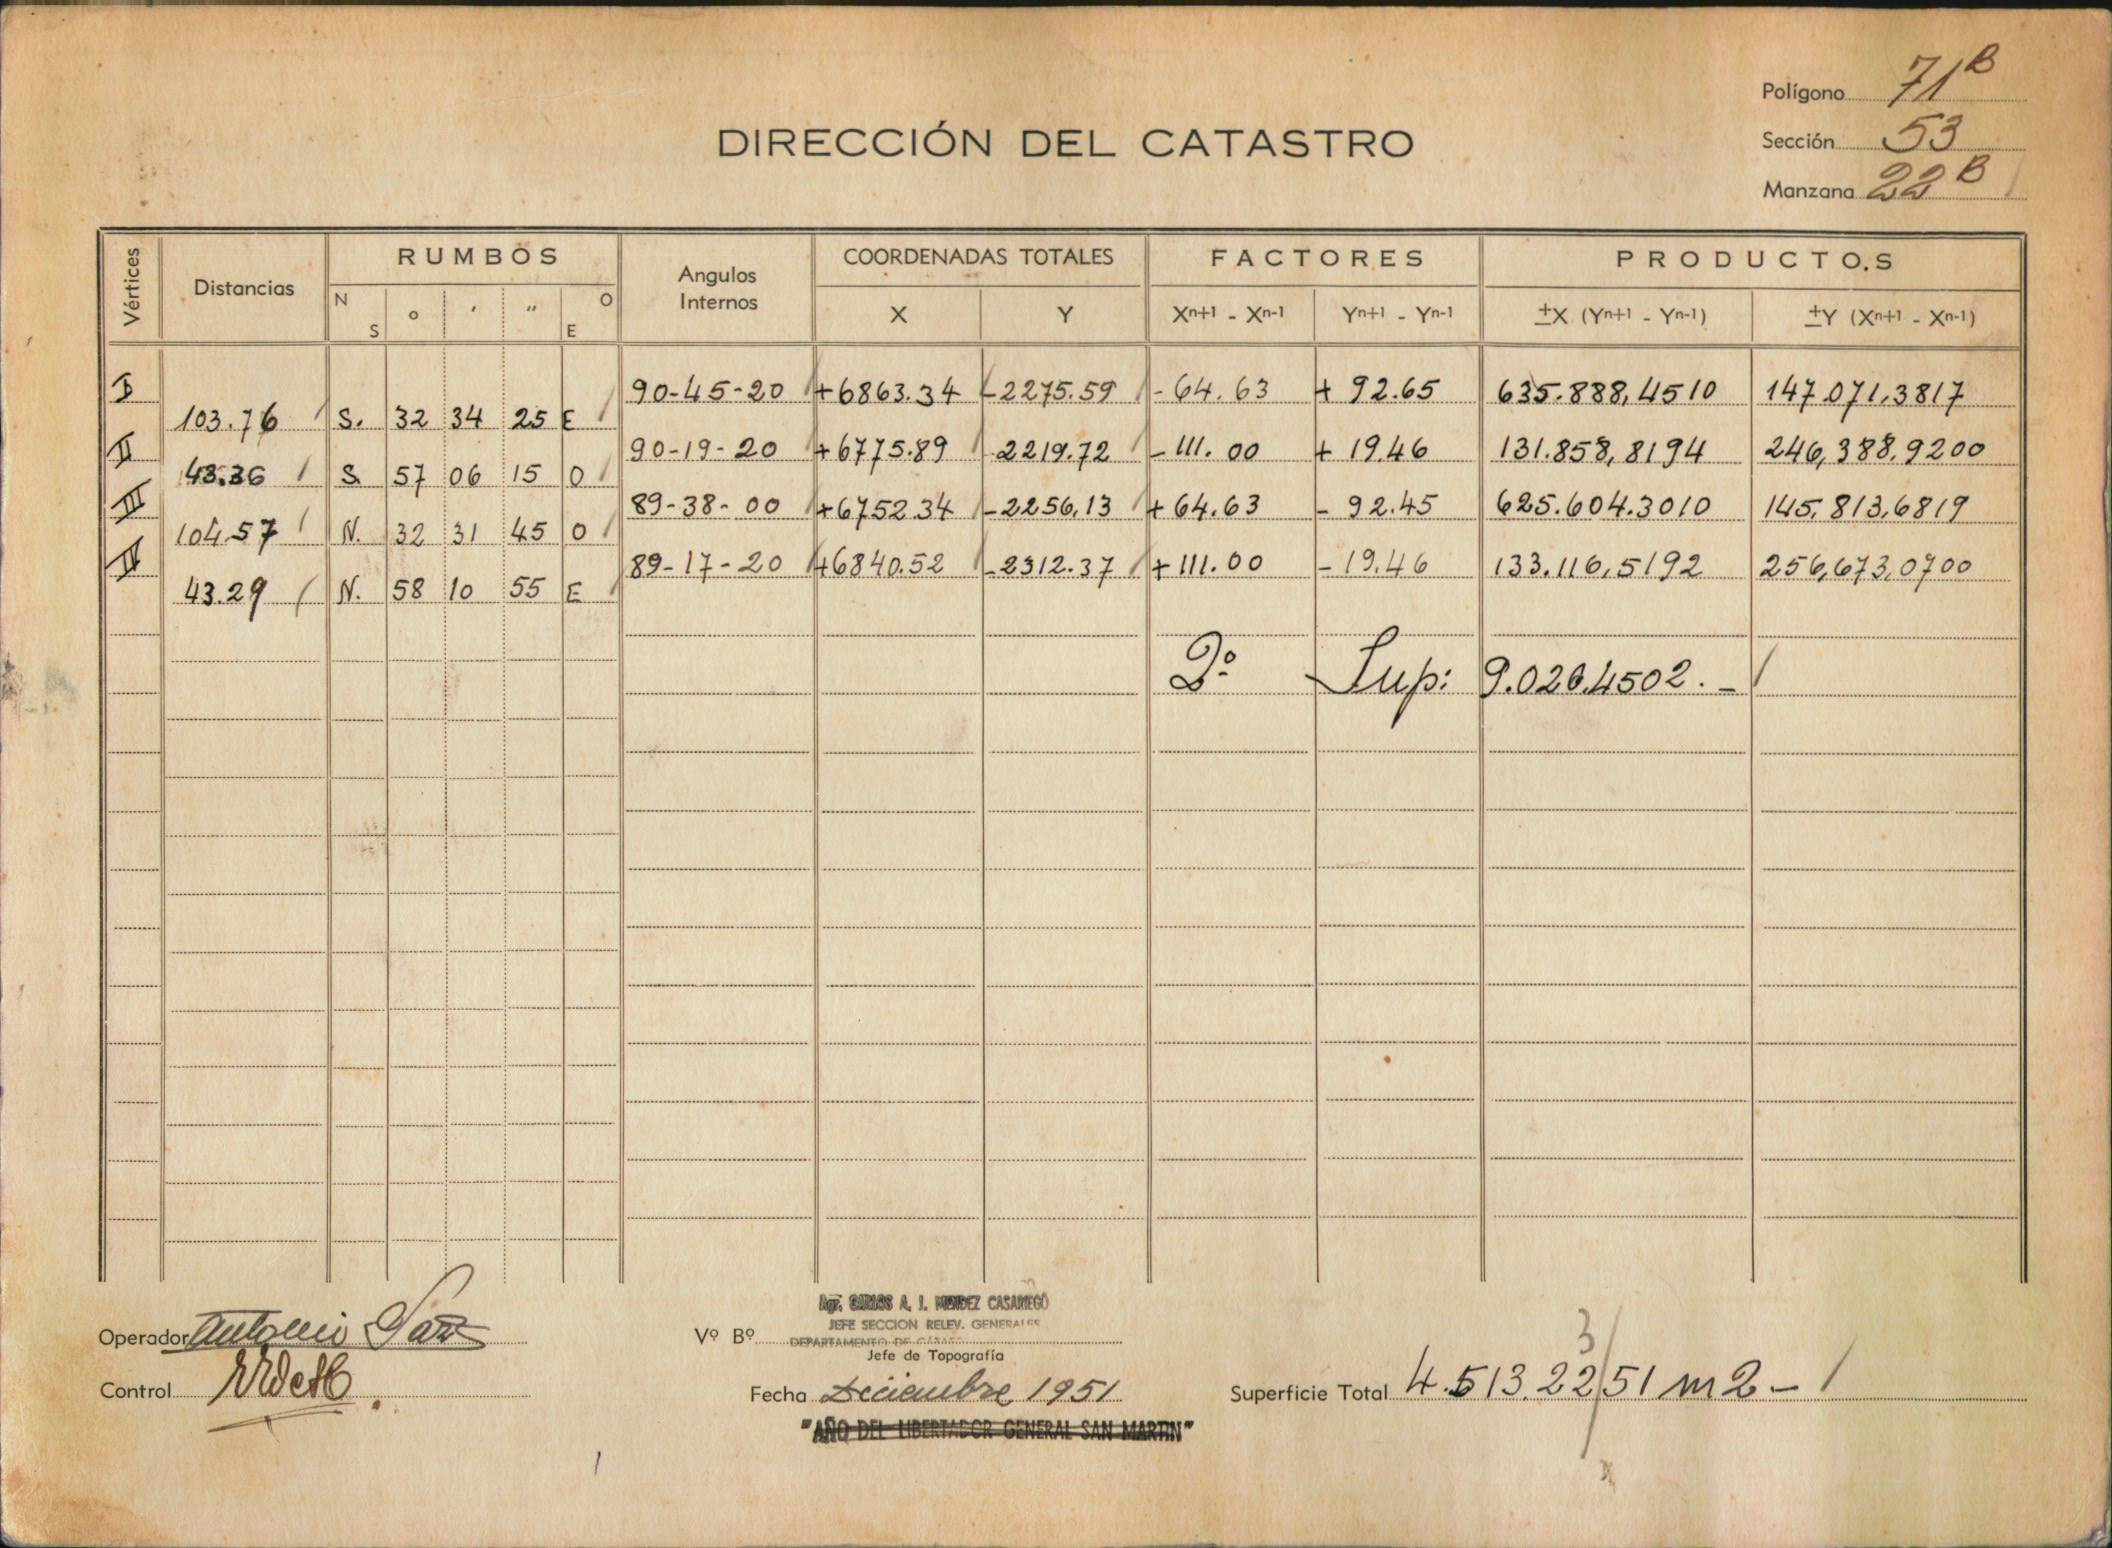 Polígono 71 B
DIRECCIÓN DEL CATASTRO
Sección 53
Manzana 22 B
Vértices Distancias RUMBOS Angulos Internos COORDENADAS TOTALES FACTORES PRODUCTO.S
N S o ' " O E X Y Xn+1 - Xn-1 Yn+1 - Yn-1 ±X (Yn+1 - Yn-1) ±Y (Xn+1 - Xn-1)
I 90-45-20 +6863.34 -2275.59 - 64.63 + 92.65 635.888,4510 147.071.3817
103.76 S. 32 34 25 E
II 90-19-20 +6775.89 -2219.72 - 111.00 + 19.46 131.858,8194 246,388.9200
43.36 S 57 06 15 O
III 89-38-00 +6752.34 -2256,13 + 64.63 - 92.45 625.604.3010 145.813,6819
104.57 N. 32 31 45 O
IV 89-17-20 +6840.52 -2312.37 + 111.00 - 19.46 133.116,5192 256,673,0700
43.29 N. 58 10 55 E
2º Sup: 9.026.4502.-
Operador Antonio
Vº Bº
Agr. CARLOS A. I. MENDEZ CASARIEGO
JEFE SECCION RELEV. GENERALES
DEPARTAMENTO DE
Jefe de Topografía
3
Control
Fecha Diciembre 1951
Superficie Total 4.513.2251 m2 -
"AÑO DEL LIBERTADOR GENERAL SAN MARTIN"